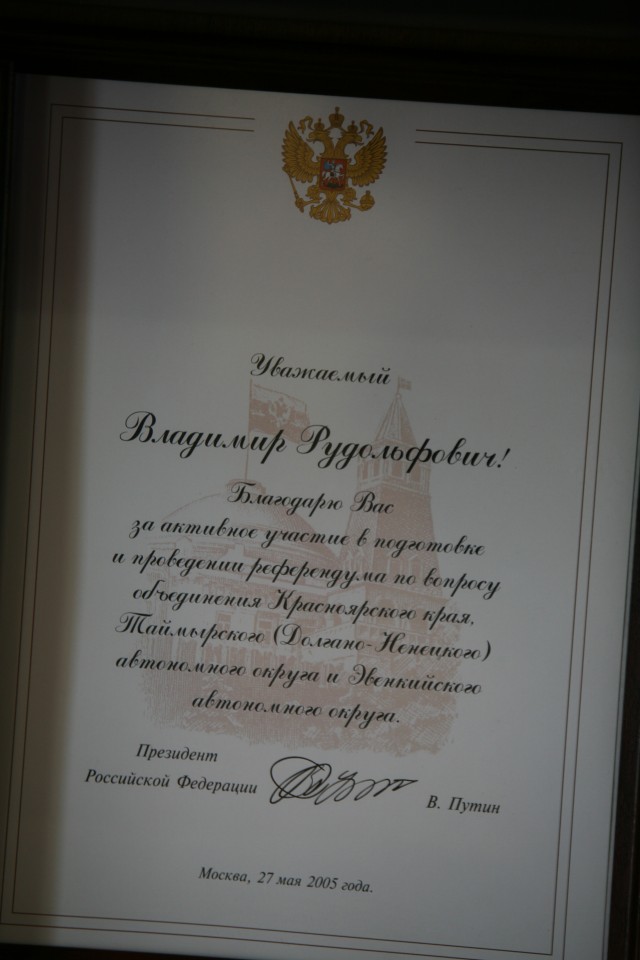 Уважаемый
Владимир Рудольфович!
Благодарю Вас
за активное участие в подготовке
и проведении референдума по вопросу
объединения Красноярского края,
Таймырского (Долгано-Ненецкого)
автономного округа и Эвенкийского
автономного округа.
Президент
Российской Федерации
В. Путин
Москва, 27 мая 2005 года.